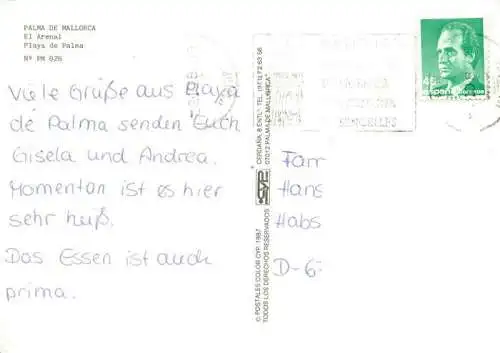 PALMA DE MALLORCA
El Arenal
Playa de Palma
Nº PM 026
Viele Grüße aus Playa
de Palma senden Euch
Gisela und Andrea.
Momentan ist es hier
sehr heiß.
Das Essen ist auch
prima.
© POSTALES COLOR CYP, 1987
TODOS LOS DERECHOS RESERVADOS
CYP
CERDAÑA, 8 ENTLº TEL. (971)
07012 PALMA DE MALLORCA
45
españa
Fam
Hans
Habs
D-6